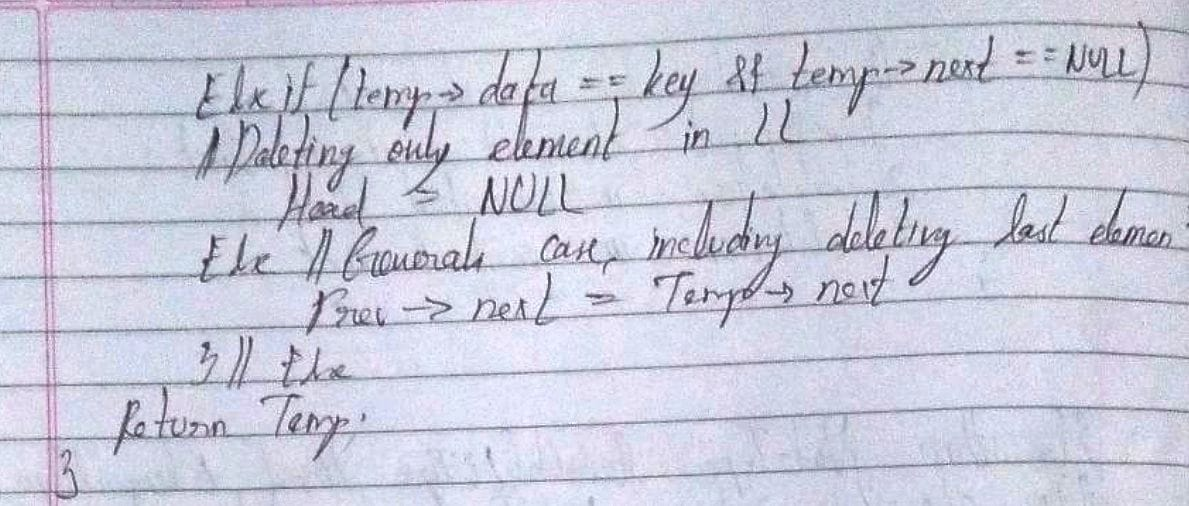 Else if (temp→ data == key && temp→ next == NULL)
// Deleting only element in LL
Head = NULL
Else // General case, including deleting last elemen
Prev → next = Temp→ next
} // else
Return Temp.
}